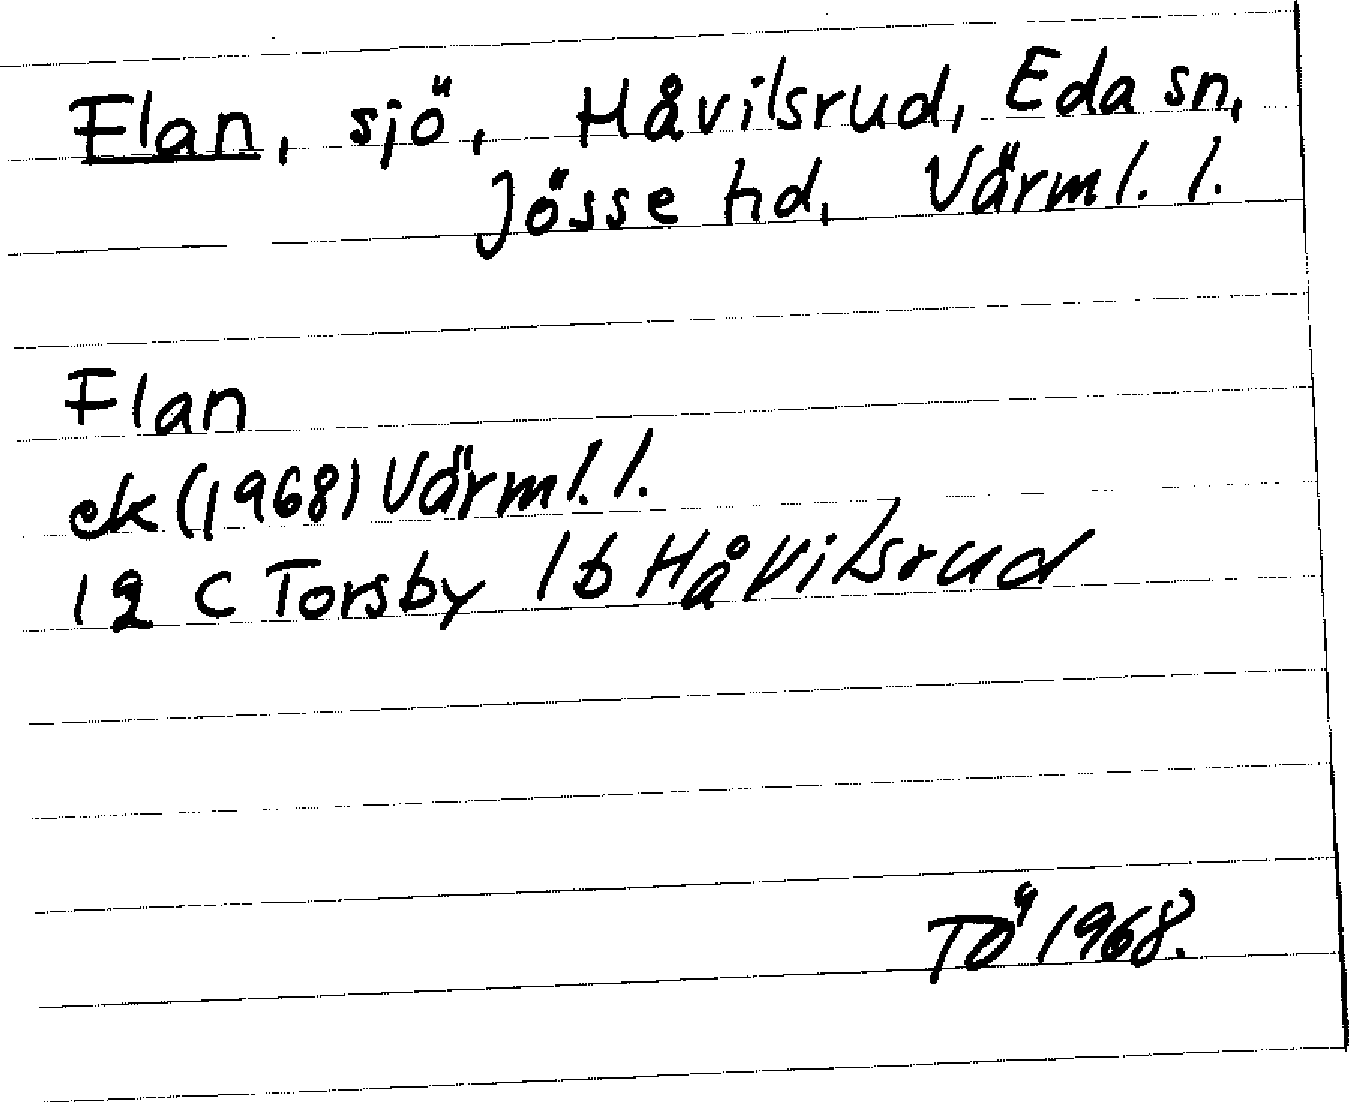 Flan, sjö, Håvilsrud, Eda sn,
Jösse hd, Värml. l.
Flan
ek (1968) Värml. l.
12 C Torsby 1b Håvilsrud
TÖ 1968.